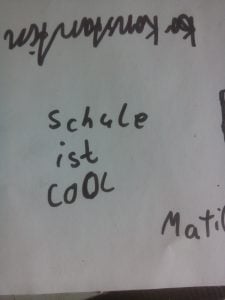 Konstantin
Schule
ist
COOL
Matil